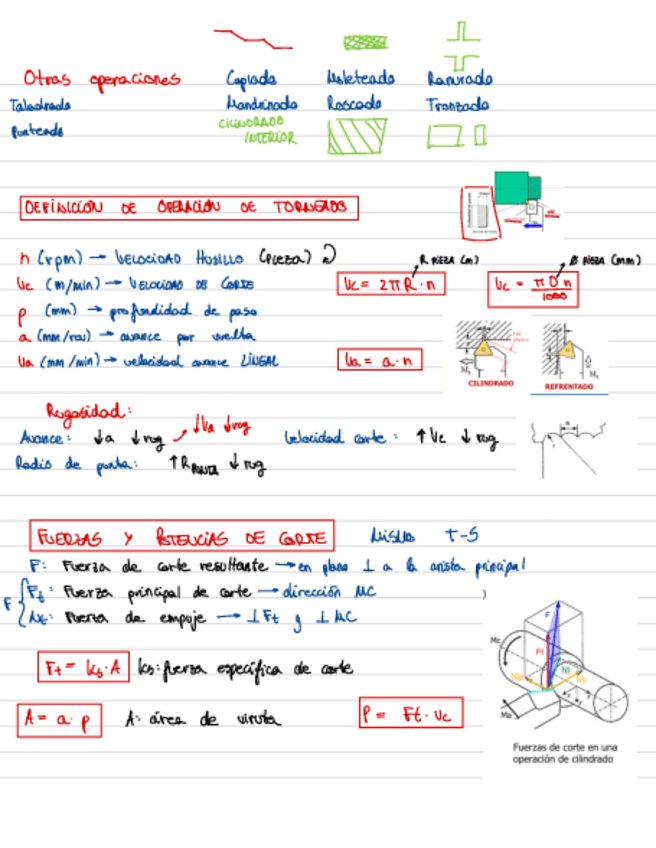 Otras operaciones Copiado Moleteado Ranurado
Taladrado Mandrinado Roscado Tronzado
Punteado CILINDRADO INTERIOR
DEFINICIÓN DE OPERACIÓN DE TORNEADO
n (rpm) → VELOCIDAD HUSILLO (pieza)
R PIEZA (m) Ø PIEZA (mm)
Vc (m/min) → VELOCIDAD DE CORTE Vc = 2πR·n Vc = πD·n/1000
p (mm) → profundidad de pasa
a (mm/rev) → avance por vuelta
Va (mm/min) → velocidad avance LINEAL Va = a·n
CILINDRADO REFRENTADO
Rugosidad:
Avance: ↓a ↓rug ↓Va ↓rug Velocidad corte: ↑Vc ↓rug
Radio de punta: ↑R PUNTA ↓rug
FUERZAS Y POTENCIAS DE CORTE T-5
F: Fuerza de corte resultante → en plano ⊥ a la arista principal
F Ft: Fuerza principal de corte → dirección MC
Nt: Fuerza de empuje → ⊥Ft y ⊥MC
Ft = ks·A ks: fuerza específica de corte
A = a·p A: área de viruta P = Ft·Vc
F
Ft
Mc
Nt
Ma
Fuerzas de corte en una
operación de cilindrado